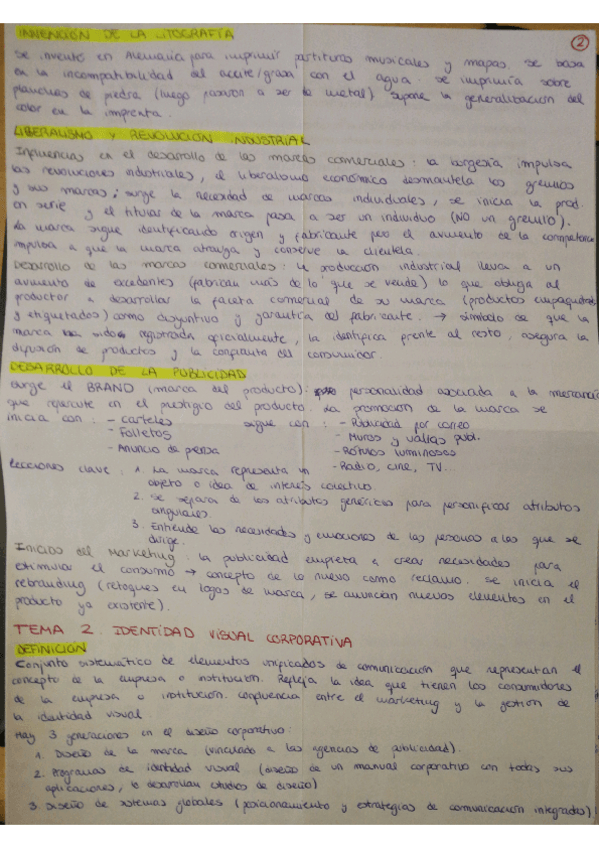 INVENCIÓN DE LA LITOGRAFÍA
2
Se inventó en Alemania para imprimir partituras musicales y mapas se basa
en la incompatibilidad del aceite/grasa con el agua. se imprimía sobre
planchas de piedra (luego pasaron a ser de metal) supone la generalización del
color en la imprenta.
LIBERALISMO Y REVOLUCIÓN INDUSTRIAL
Influencias en el desarrollo de las marcas comerciales: la burguesía impulsa
las revoluciones industriales, el liberalismo económico desmantela los gremios
y sus marcas; surge la necesidad de marcas individuales, se inicia la prod.
en serie y el titular de la marca pasa a ser un individuo (NO un gremio).
La marca sigue identificando origen y fabricante pero el aumento de la competencia
impulsa a que la marca atraiga y conserve la clientela.
Desarrollo de las marcas comerciales: la producción industrial lleva a un
aumento de excedentes (fabrican más de lo que se vende) lo que obliga al
productor a desarrollar la faceta comercial de su marca (productos empaquetados
y etiquetados) como disyuntivo y garantía del fabricante. → símbolo de que la
marca ha sido registrada oficialmente, la identifica frente al resto, asegura la
difusión de productos y la confianza del consumidor.
DESARROLLO DE LA PUBLICIDAD
Surge el BRAND (marca del producto): personalidad asociada a la mercancía
que repercute en el prestigio del producto. La promoción de la marca se
inicia con: - Carteles sigue con: - Publicidad por correo
- Folletos - Muros y vallas publ.
- Anuncio de prensa - Rótulos luminosos
- Radio, cine, TV...
Lecciones clave: 1. La marca representa un
objeto o idea de interés colectivo
2. Se separa de los atributos genéricos para personificar atributos
singulares.
3. Entiende las necesidades y emociones de las personas a las que se
dirige.
Inicios del Marketing: la publicidad empieza a crear necesidades para
estimular el consumo → concepto de lo nuevo como reclamo. se inicia el
rebranding (retoques en logos de marca, se anuncian nuevos elementos en el
producto ya existente).
TEMA 2. IDENTIDAD VISUAL CORPORATIVA
DEFINICIÓN
Conjunto sistemático de elementos unificados de comunicación que representan el
concepto de la empresa o institución. Refleja la idea que tienen los consumidores
de la empresa o institución. confluencia entre el marketing y la gestión de
la identidad visual.
Hay 3 generaciones en el diseño corporativo:
1. Diseño de la marca (vinculado a las agencias de publicidad).
2. Programas de identidad visual (diseño de un manual corporativo con todas sus
aplicaciones, lo desarrollan estudios de diseño)
3. Diseño de sistemas globales (posicionamiento y estrategias de comunicación integradas)